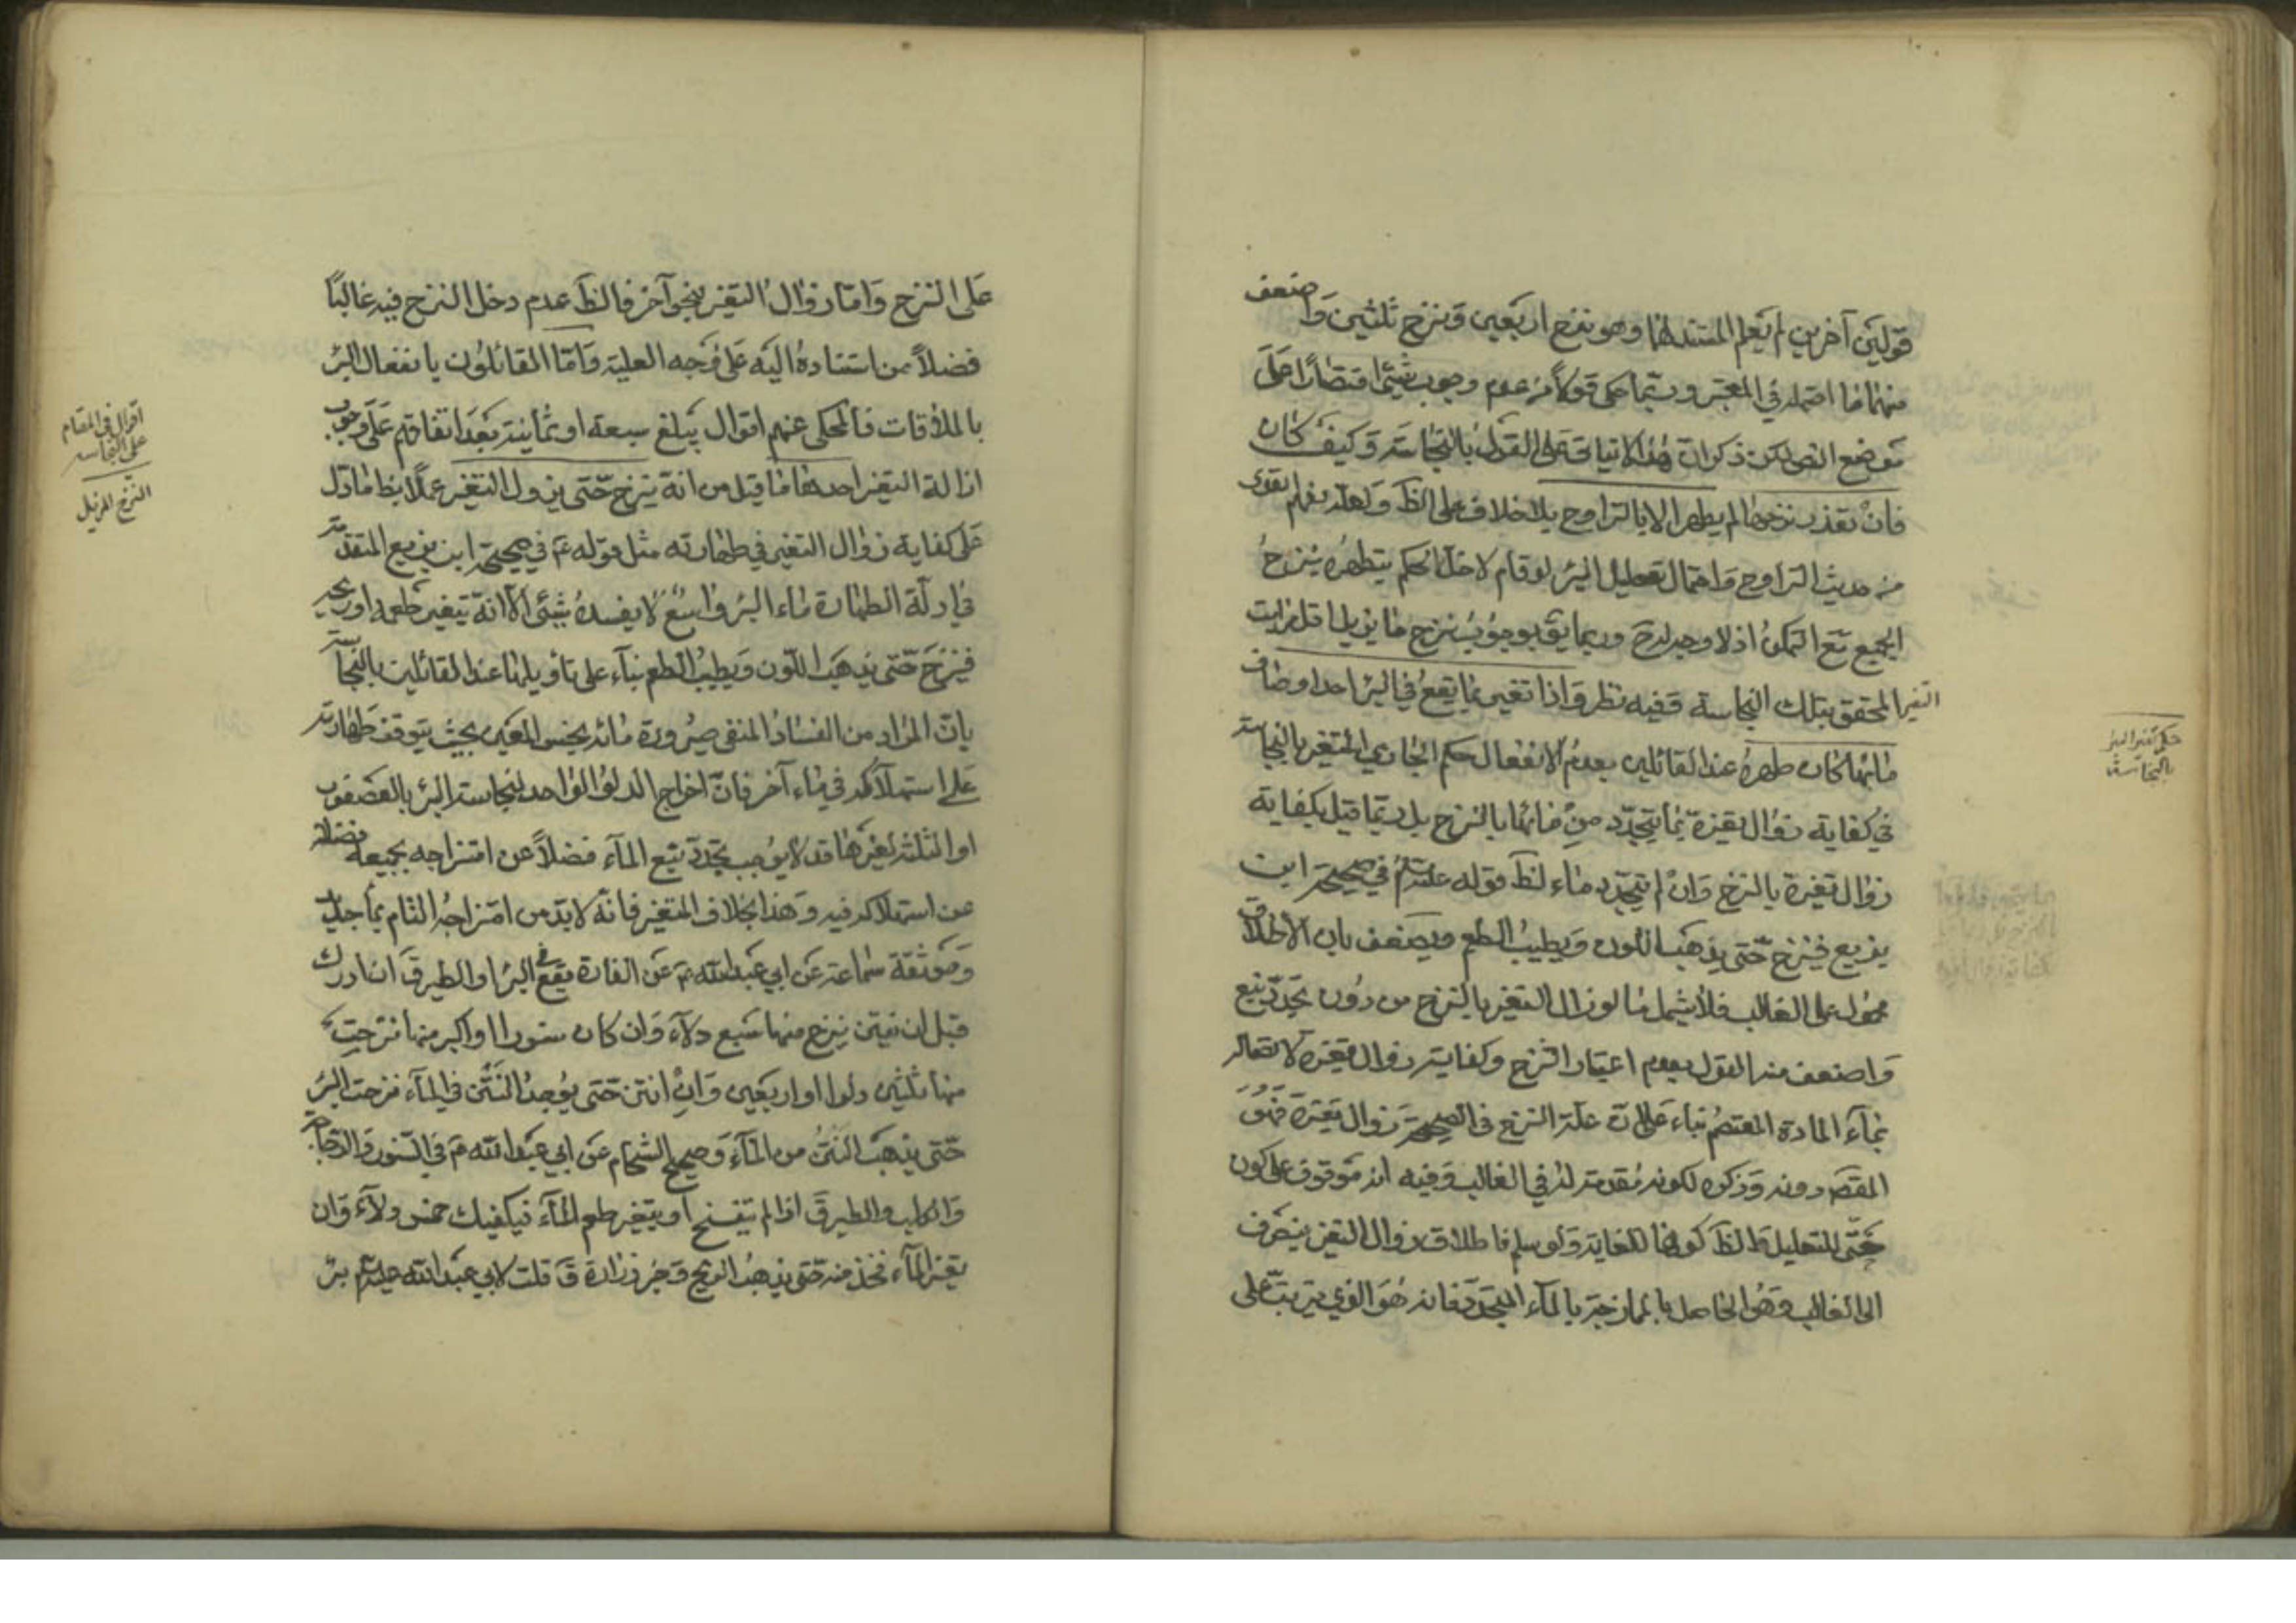 قولين آخرين لم نعلم المستند لهما وهو نزح اربعين ونزح ثلثين واضعف
منهما ما احتمله في المعتبر وربما حكى قولا من عدم وجوب شيئ اقتصارا على
موضع النص لكن ذكر ان هذا لا يتأتى على القول بالنجاسة وكيف كان
فان تعذر نزحها لم يطهر الا بالتراوح بلا خلاف على الظ ولعله لفهم
من حديث التراوح واحتمال تعطيل البئر لو قام لاختل الحكم بتطهره بنزح
الجميع مع التمكن اذ لا وجه لترجح وربما يق بوجوب نزح ما يزيل
التغير المحقق بتلك النجاسة وفيه نظر واذا تغير بما يقع في البئر احد اوصاف
مائها كان طهره عند القائلين بعدم الانفعال حكم الجاري المتغير بالنجاسة
في كفاية زوال تغيره بما يتجدد من مائها بالنزح بل ربما قيل بكفاية
زوال تغيره بالنزح وان لم يتجدد ماء لظ قوله عليه السلم في صحيحة ابن
بزيع فينزح حتى يذهب اللون ويطيب الطعم ويضعف بان الاطلاق
محمول على الغالب فلا يشمل ما لو زال التغير بالنزح من دون تجدد نبع
واضعف منه القول بعدم اعتبار النزح وكفاية زوال تغيره لاتصاله
بماء المادة المعتصم بناء على ان علة النزح في الصحيحة زوال تغيره فهو
المقصد دونه وذكره لكونه مقدمة له في الغالب وفيه انه موقوف على كون
حتى للتعليل والظ كونها للغاية ولو سلم فاطلاق زوال التغير ينصرف
الى الغالب وهو الحاصل بالممازجة بالماء المتجدد فانه هو الذي يترتب على
حكم تغير البئر
بالنجاسة
على النزح واما زوال التغير بنحو آخر فالظ عدم دخل النزح فيه غالبا
فضلا من استناده اليه على وجه العلية واما القائلون بانفعال البئر
بالملاقات فالمحكى عنهم اقوال يبلغ سبعة او ثمانية بعد اتفاقهم على وجوب
ازالة التغير احدها ما قيل من انه ينزح حتى يزول التغير عملا بظ ما دل
على كفاية زوال التغير في طهارته مثل قوله ع في صحيحة ابن بزيع المتقدمة
في ادلة الطهارة ماء البئر واسع لا يفسده شيئ الا انه يتغير طعمه او ريحه
فينزح حتى يذهب اللون ويطيب الطعم بناء على تأويلها عند القائلين بالنجاسة
بان المراد من الفساد المنفى صيرورة مائه كنجس العين بحيث يتوقف طهارته
على استهلاكه في ماء آخر فان اخراج الدلو الواحد لنجاسة البئر بالعصفور
او الثلثة لغيرها قد لا يوجب تجدد نبع الماء فضلا عن امتزاجه بجميعه فضلا
عن استهلاكه فيه وهذا بخلاف المتغير فانه لا بد من امتزاجه التام بماء جديد
وموثقة سماعة عن ابي عبد الله ع عن الفارة يقع في البئر او الطير ق ان ادركته
قبل ان ينتن ينزح منها سبع دلاء وان كان سنورا او اكبر منها نزحت
منها ثلثين دلوا او اربعين وان انتن حتى يوجد النتن في الماء نزحت البئر
حتى يذهب النتن من الماء وصحيح الشحام عن ابي عبد الله ع في السنور والدجاجة
والكلب والطير ق اذا لم يتفسخ او يتغير طعم الماء فيكفيك خمس دلاء وان
تغير الماء فخذ منه حتى يذهب الريح وخبر زرارة ق قلت لابي عبد الله عليه السلم بئر
اقوال في المقام
على النجاسه
النزح المزيل